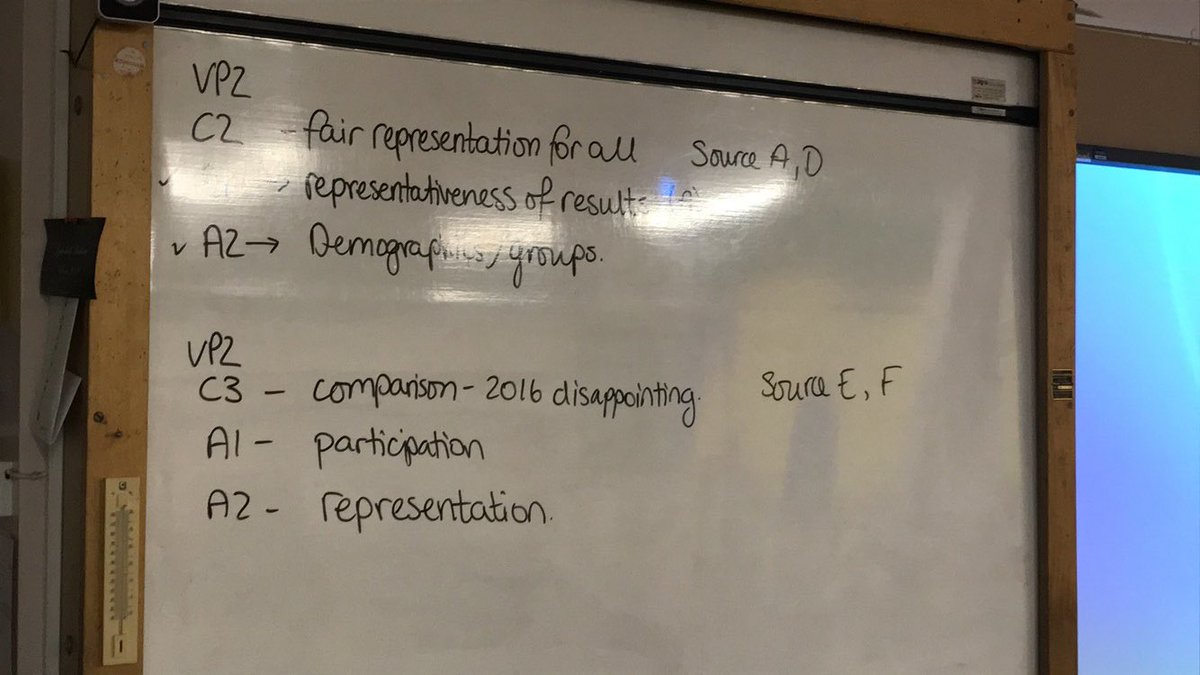 VP2
C2 - fair representation for all Source A, D
✓ → representativeness of results
✓ A2 → Demographics/groups.
VP2
C3 - comparison - 2016 disappointing. Source E, F
A1 - participation
A2 - representation.